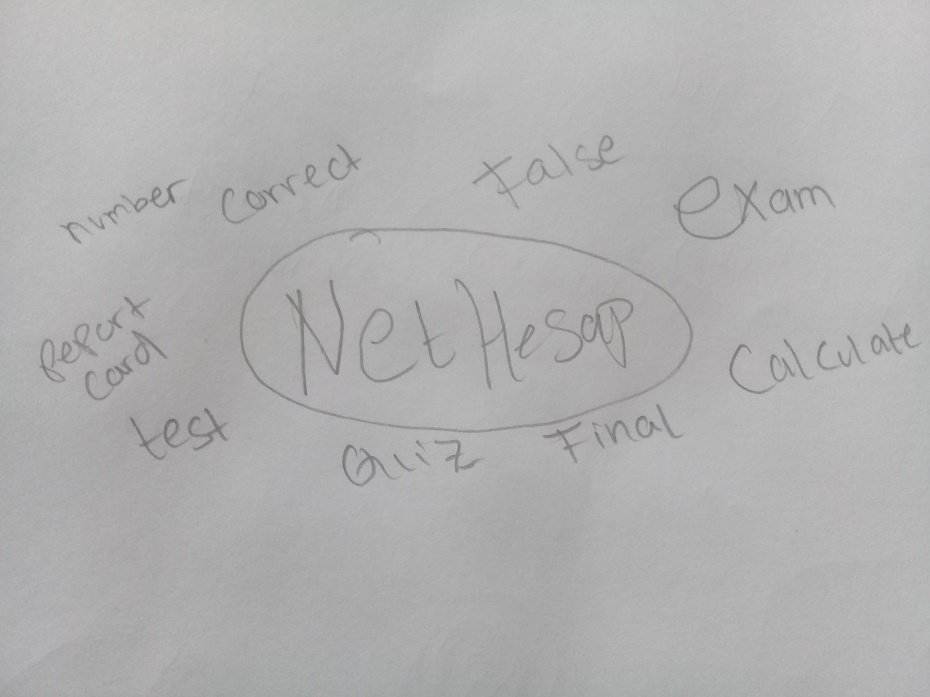 number correct False exam
Net Hesap
Report
card
Calculate
test
Quiz Final